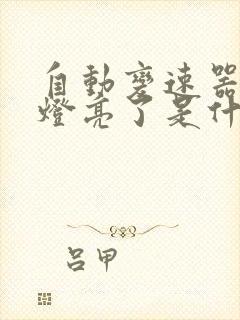 自動變速器
燈亮了是什
呂甲